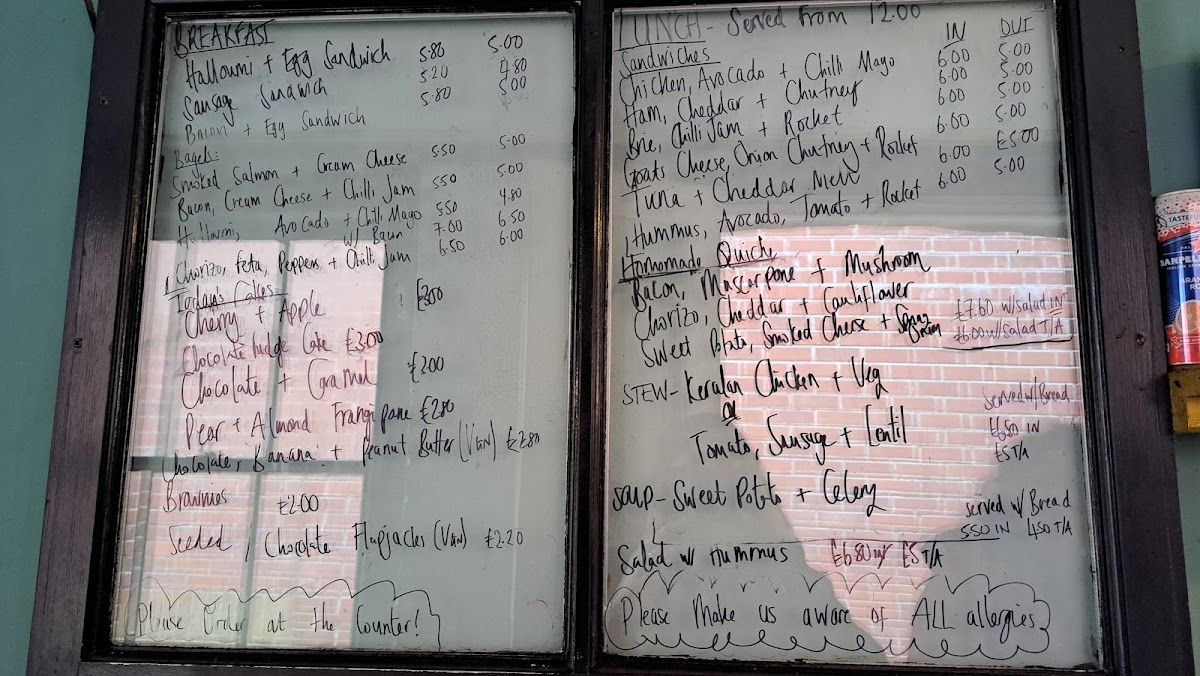 BREAKFAST
Halloumi + Egg Sandwich 5.80 5.00
Sausage Sandwich 5.20 4.80
Bacon + Egg Sandwich 5.80 5.00
Bagels:
Smoked Salmon + Cream Cheese 5.50 5.00
Bacon, Cream Cheese + Chilli Jam 5.50 5.00
Halloumi, Avocado + Chilli Mayo 5.50 4.80
w/ Bacon 7.00 6.50
Chorizo, Feta, Peppers + Chilli Jam 6.50 6.00
Today's Cakes
Cherry + Apple £3.00
Chocolate fudge Cake £3.00
Chocolate + Caramel £2.00
Pear + Almond Frangipane £2.80
Chocolate, Banana + Peanut Butter (VGN) £2.80
Brownies £2.00
Seeded / Chocolate Flapjacks (VGN) £2.20
Please Order at the Counter!
LUNCH - Served From 12.00
Sandwiches IN OUT
Chicken, Avocado + Chilli Mayo 6.00 5.00
Ham, Cheddar + Chutney 6.00 5.00
Brie, Chilli Jam + Rocket 6.00 5.00
Goats Cheese, Onion Chutney + Rocket 6.00 5.00
Tuna + Cheddar Melt 6.00 £5.00
Hummus, Avocado, Tomato + Rocket 6.00 5.00
Homomade Quiche
Bacon, Mascarpone + Mushroom
Chorizo, Cheddar + Cauliflower
Sweet Potato, Smoked Cheese +
£7.60 w/salad IN
£6.00 w/salad T/A
STEW - Keralan Chicken + Veg
OR
Tomato, Sausage + Lentil
served w/ Bread
£6.80 IN
£5 T/A
SOUP - Sweet Potato + Celery
served w/ Bread
5.50 IN 4.50 T/A
Salad w/ Hummus £6.80 IN £5 T/A
Please Make us aware of ALL allergies
TASTE
SANPEL
ARAN
RO